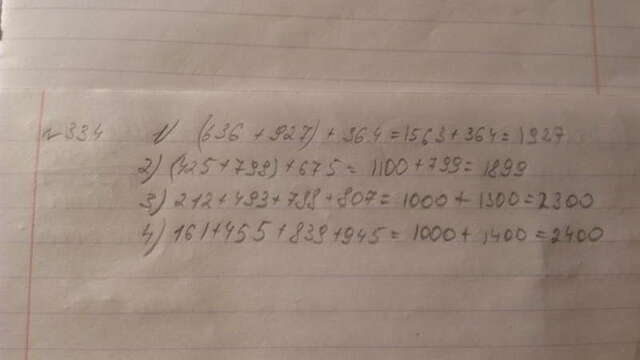 №334 1) (636 + 927) + 364 = 1563 + 364 = 1927
2) (425 + 798) + 675 = 1100 + 799 = 1899
3) 212 + 493 + 788 + 807 = 1000 + 1300 = 2300
4) 161 + 455 + 839 + 945 = 1000 + 1400 = 2400